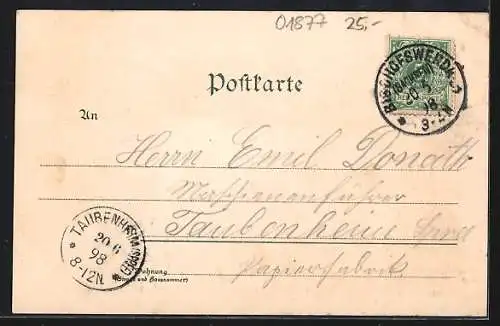 01877 25,-
Postkarte
BISCHOFSWERDA
20 6
98
8-9N
An
Herrn Emil Donath
Maschienenführer
Taubenheim Spree
Papierfabrik
TAUBENHEIM (SPREE)
20 6
98
8-12N
Wohnung
(Straße und Hausnummer)